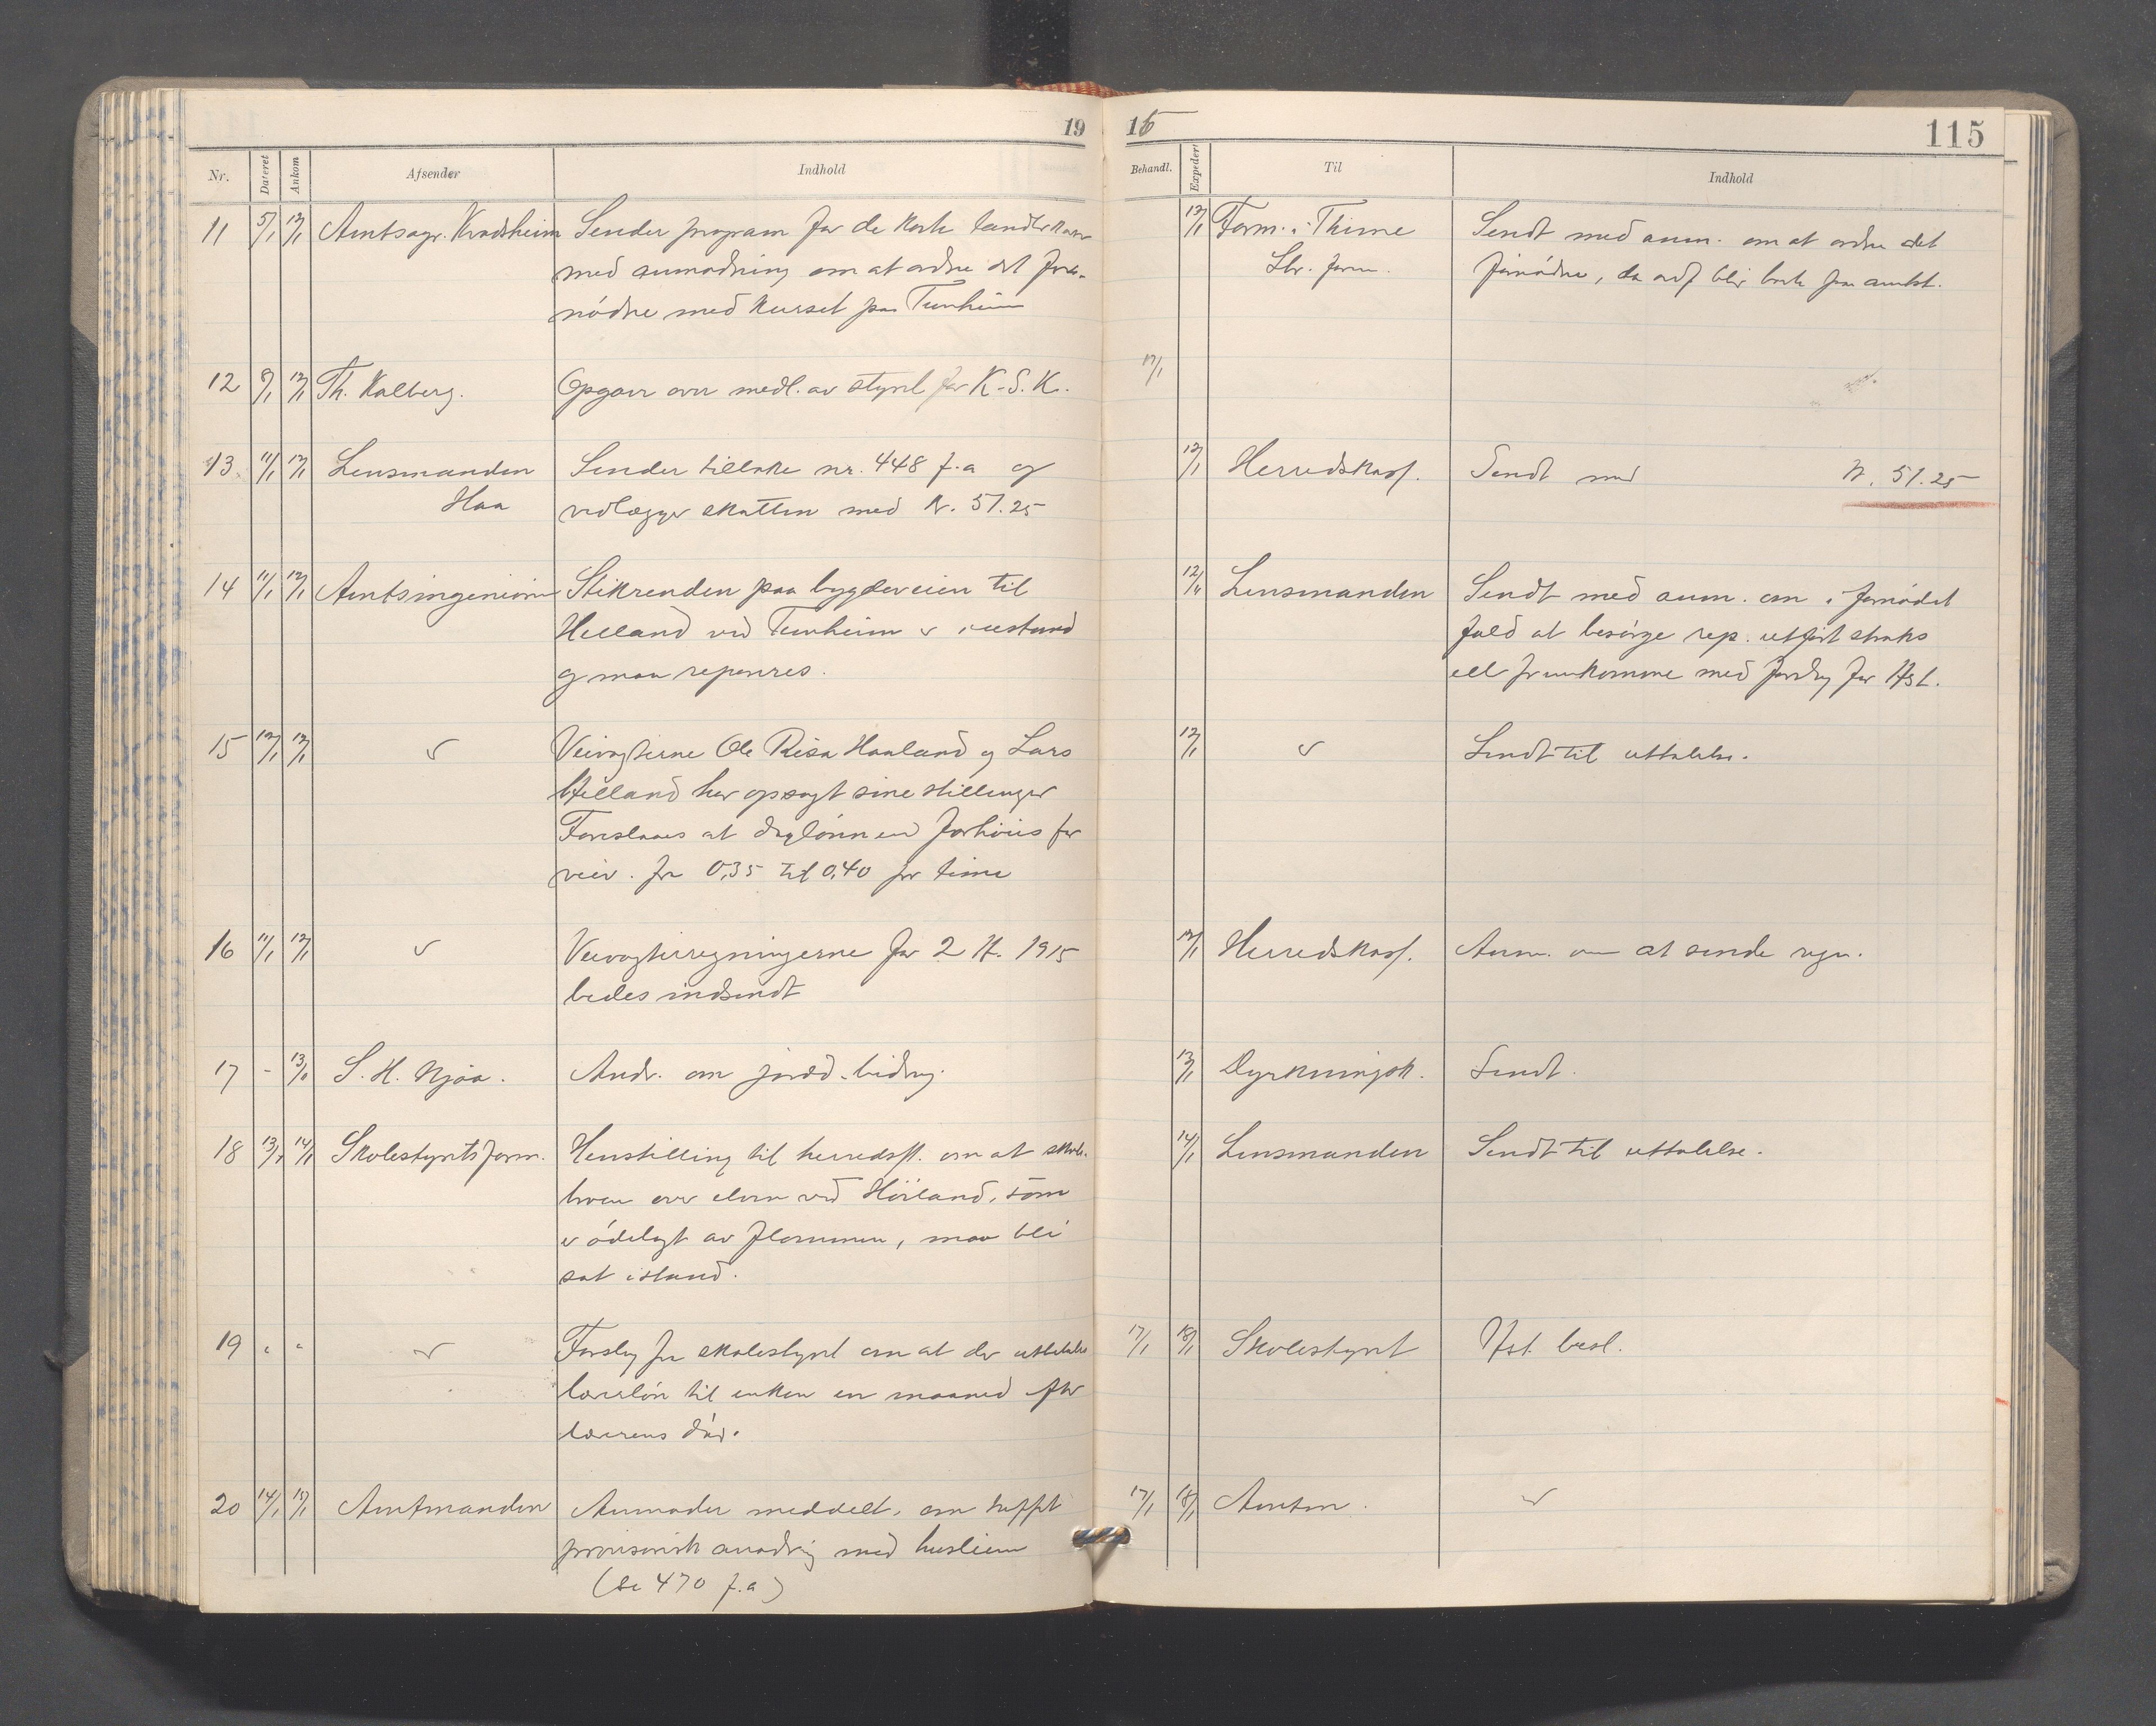 19
16
115
Nr. Dateret Ankom Afsender Indhold
Behandl. Expedert Til Indhold
11 5/1 12/1 Amtsagr. Kvadsheim Sender program for de korte landbr.kurser
med anmodning om at ordne det for-
nødne med kurset paa Tunheim
12/1 Form. i Thime Sendt med anm. om at ordne det
Lbr. form. fornødne, da
12 9/1 12/1 Th. Kalberg. Opgave over medl. av styret for K.S.K.
17/1
13 11/1 12/1 Lensmanden Sender tilbake nr. 448 f.a og
Haa vedlægger skatten med Kr. 51.25
12/1 Herredskass. Sendt med Kr. 51.25
14 11/1 12/1 Amtsingeniøren Stikrenden paa bygdeveien til
Helland ved Tunheim er i ustand
og maa repareres.
12/1 Lensmanden Sendt med anm. om i fornødet
fald at besørge rep. utført straks
ell fremkomme med forslag for Hst.
15 12/1 12/1 ✓ Veivogterne Ole Risa Haaland og Lars
Helland har opsagt sine stillinger
Foreslaaes at daglønnen forhøies for
veiv. fra 0,35 til 0,40 pr time
12/1 ✓ Sendt til uttalelse.
16 11/1 12/1 ✓ Veivogterregningerne for 2 H. 1915
bedes indsendt
12/1 Herredskass. Anm. om at sende regn.
17 - 13/1 S. H. Njåa. Andr. om jordd.bidrag.
13/1 Dyrkningsk. Sendt.
18 13/1 14/1 Skolestyrets form. Henstilling til herredsst. om at skole-
broen over elven ved Høiland, som
er ødelagt av flommen, maa bli
sat istand.
14/1 Lensmanden Sendt til uttalelse.
19 " " ✓ Forslag fra skolestyret om at der utbetales
lærerløn til enken en maaned efter
lærerens død.
17/1 18/1 Skolestyret Hst. besl.
20 14/1 15/1 Amtmanden Anmoder meddelt, om
provisorisk anordning med husleien
(se 470 f.a)
17/1 18/1 Amtm. ✓